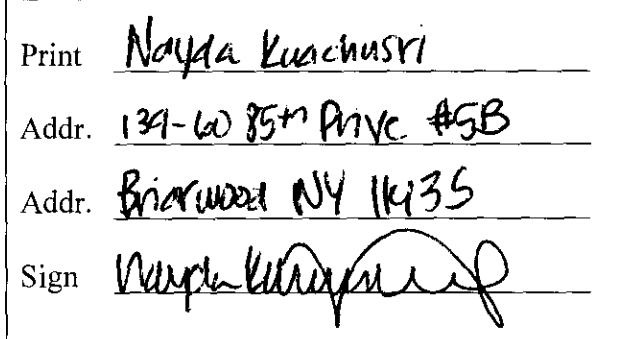 Print Nayda Kuachusri
Addr. 139-60 85th Drive #5B
Addr. Briarwood NY 11435
Sign